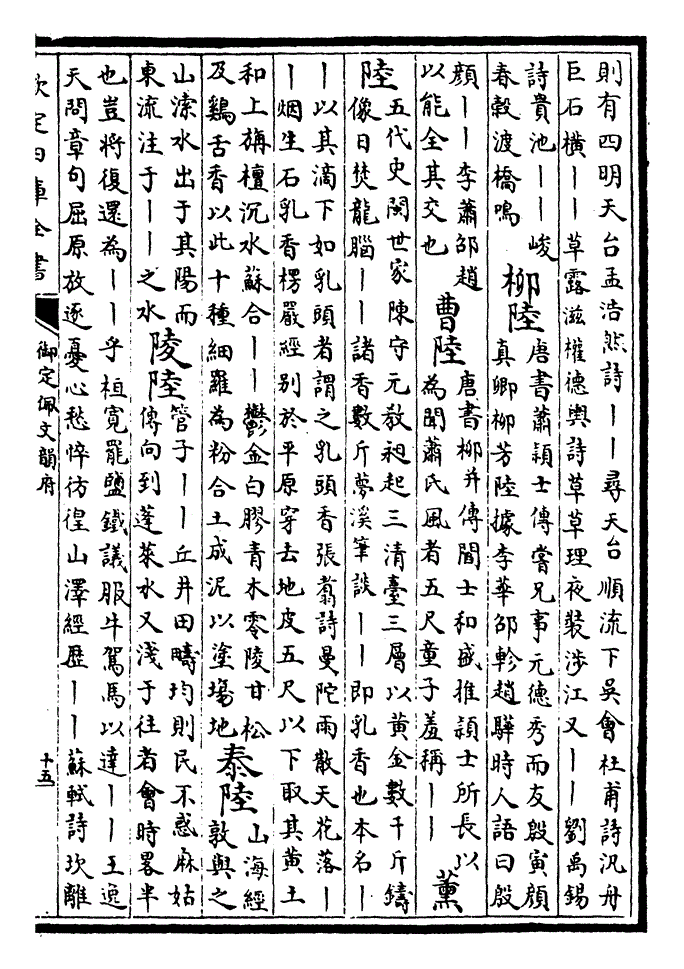 則有四明天台孟浩然詩丨丨尋天台順流下吳會杜甫詩汎舟
巨石橫丨丨草露滋權德輿詩草草理夜裝涉江又丨丨劉禹錫
詩貴池丨丨峻
春穀渡橋鳴
柳陸
唐書蕭穎士傳嘗兄事元德秀而友殷寅顏
真卿柳芳陸據李華邵軫趙驊時人語曰殷
顏丨丨李蕭邵趙
以能全其交也
曹陸
唐書柳并傳閻士和盛推穎士所長以
為聞蕭氏風者五尺童子羞稱丨丨
薰
陸
五代史閩世家陳守元敎昶起三清臺三層以黃金數千斤鑄
像日焚龍腦丨丨諸香數斤夢溪筆談丨丨即乳香也本名丨
丨以其滴下如乳頭者謂之乳頭香張翥詩曼陀雨散天花落丨
丨烟生石乳香楞嚴經别於平原穿去地皮五尺以下取其黃土
和上旃檀沉水蘇合丨丨鬱金白膠青木零陵甘松
及鷄舌香以此十種細羅為粉合土成泥以塗塲地
泰陸
山海經
敦與之
山溹水出于其陽而
東流注于丨丨之水
陵陸
管子丨丨丘井田疇均則民不惑麻姑
傳向到蓬萊水又淺于往者會時畧半
也豈將復還為丨丨乎桓寬罷鹽鐵議服牛駕馬以達丨丨王逸
天問章句屈原放逐憂心愁悴彷徨山澤經歷丨丨蘇軾詩坎離
欽定四庫全書
御定佩文韻府
十五